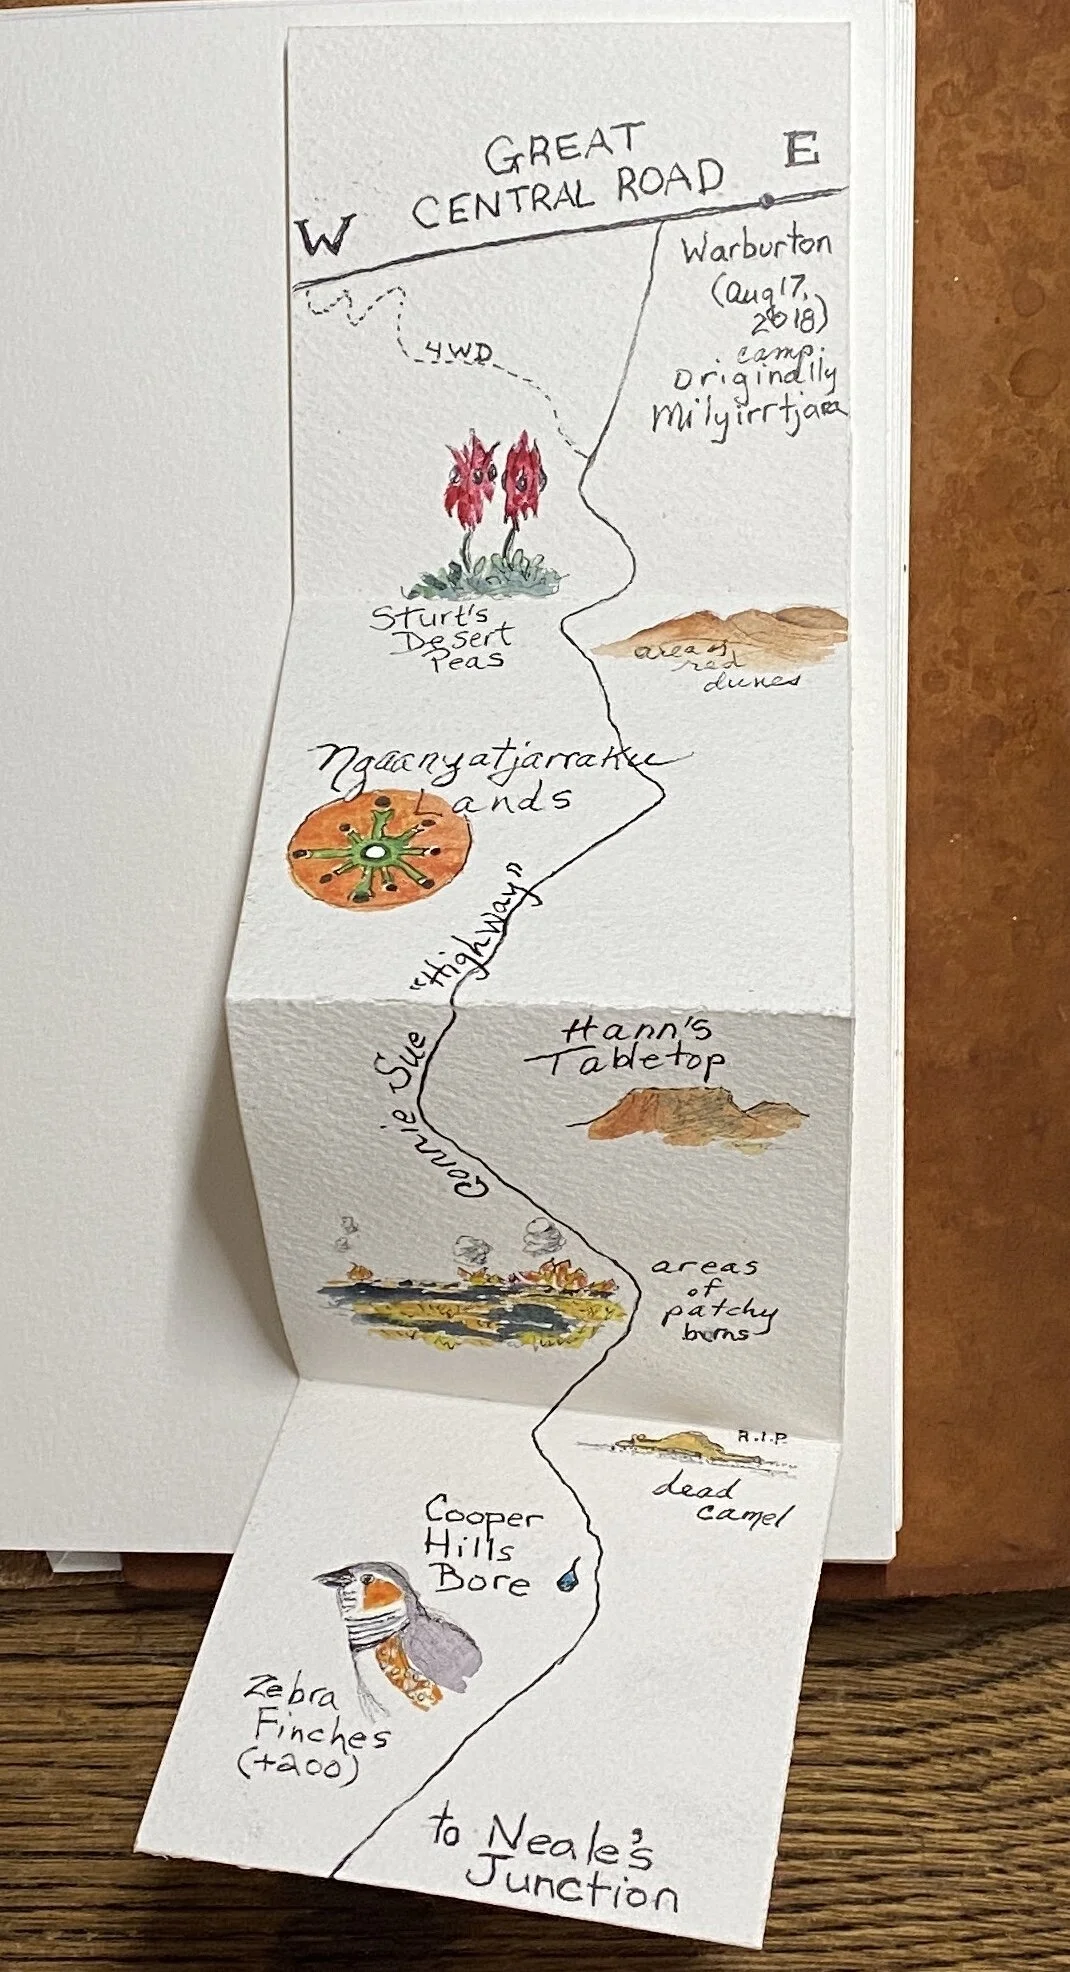 GREAT
CENTRAL ROAD
E
W
Warburton
(Aug 17,
2018)
camp.
Originally
Milyirrtjara
4WD
Sturt's
Desert
Peas
area of
red
dunes
Ngaanyatjarraku
Lands
Connie Sue "Highway"
Hann's
Tabletop
areas
of
patchy
burns
R.I.P.
dead
camel
Cooper
Hills
Bore
Zebra
Finches
(+200)
to Neale's
Junction